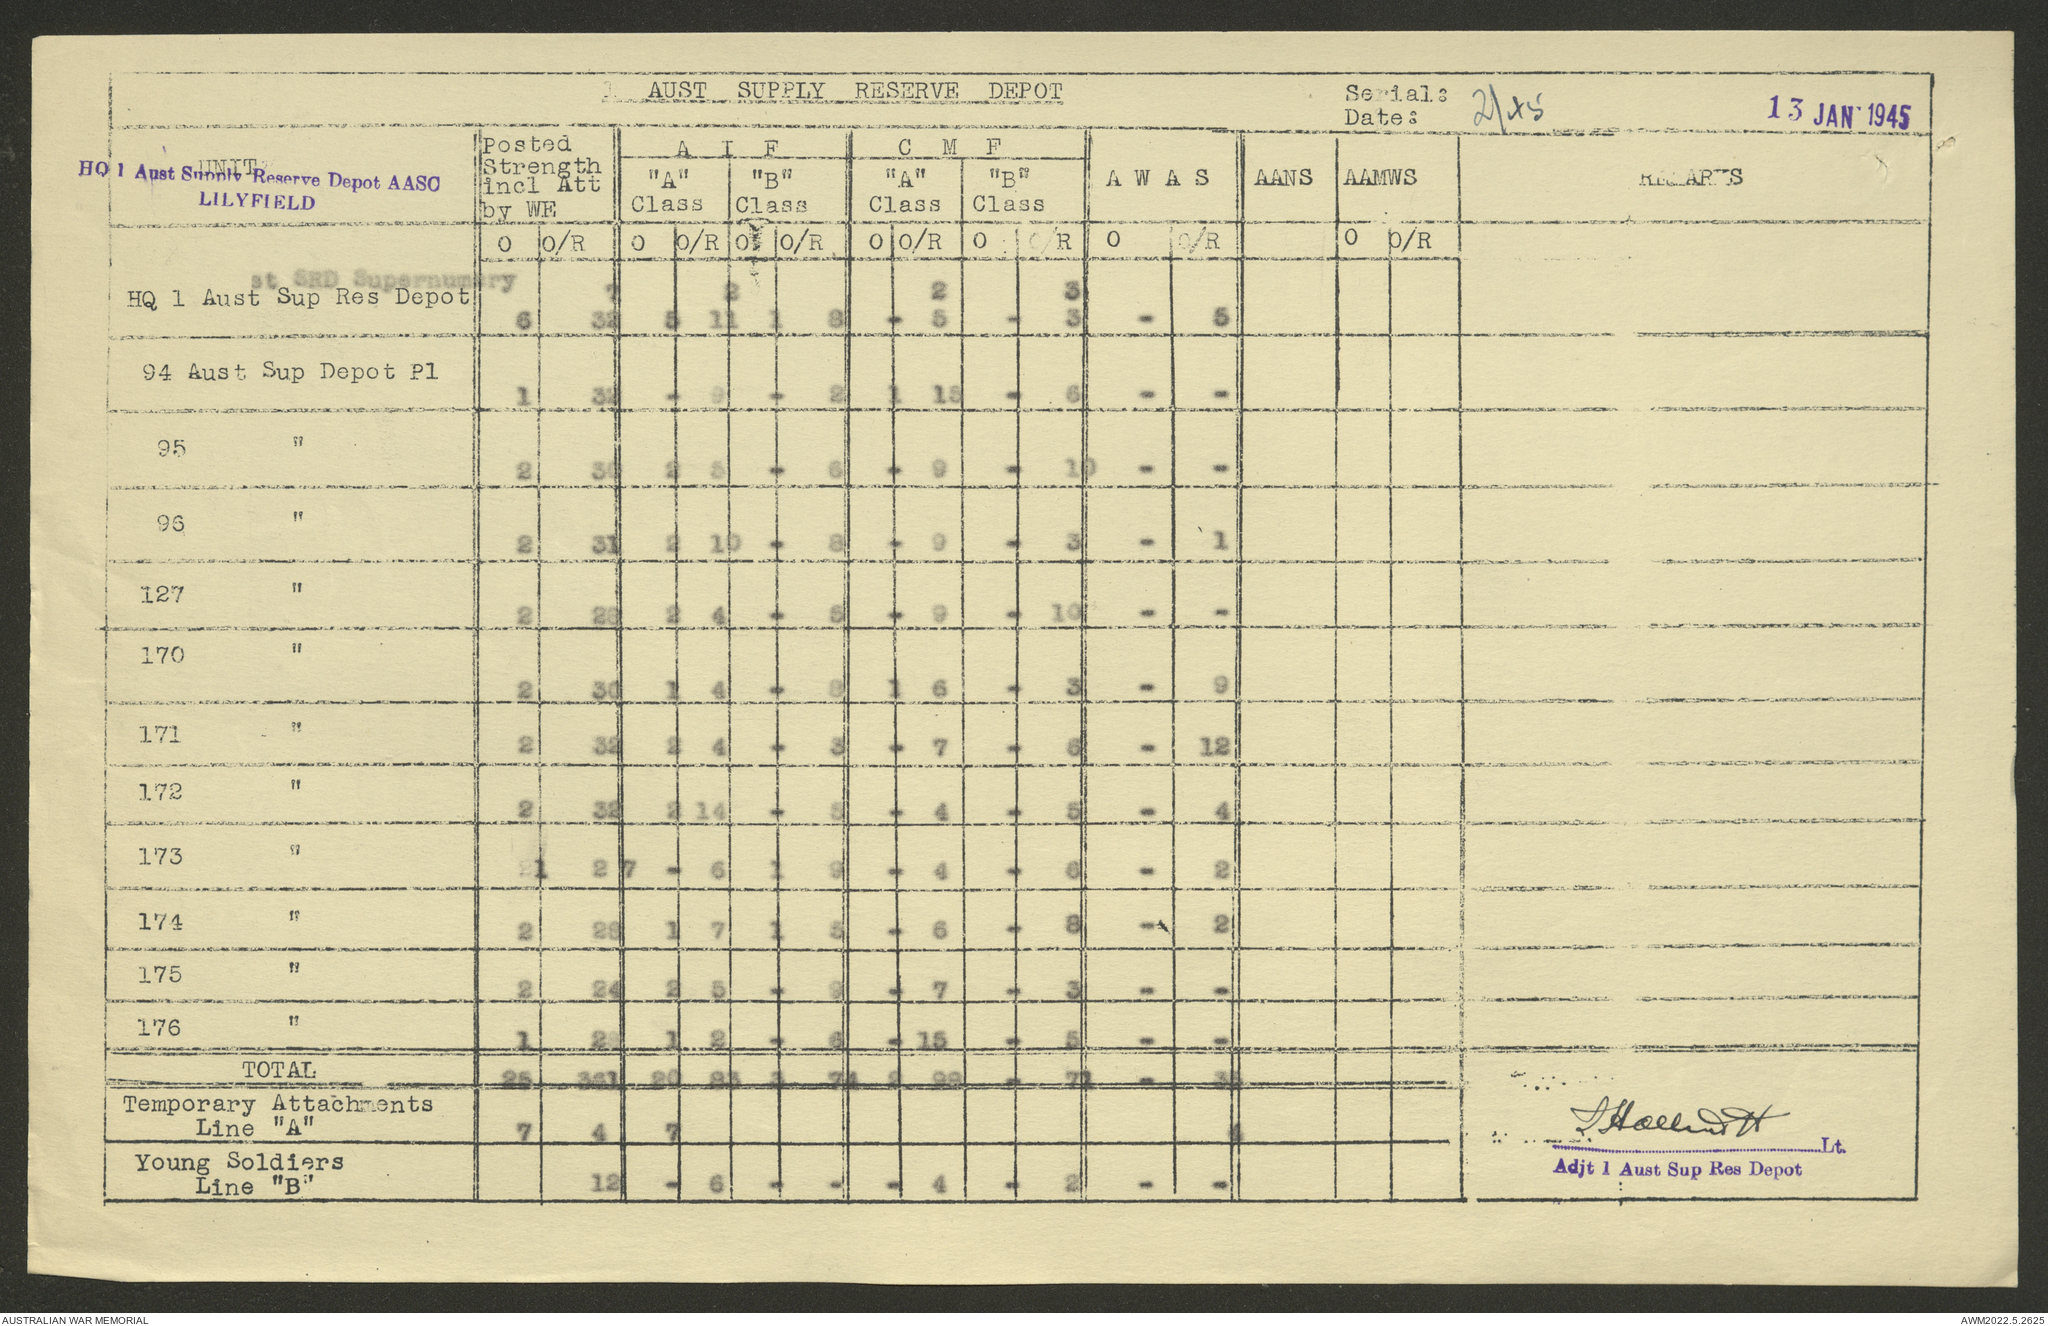 1 AUST SUPPLY RESERVE DEPOT
Serial: 2/45
Date: 13 JAN 1945
UNIT
HQ 1 Aust Supply Reserve Depot AASC
LILYFIELD
Posted Strength incl Att by WE
A I F
C M F
"A" Class "B" Class "A" Class "B" Class
A W A S AANS AAMWS REMARKS
O O/R O O/R O O/R O O/R O O/R O O/R O O/R
st SRD Supernumery 7 2 2 3
HQ 1 Aust Sup Res Depot 6 32 5 11 1 8 - 5 - 3 - 5
94 Aust Sup Depot Pl 1 32 - 9 - 2 1 15 - 6 - -
95 " 2 30 2 5 - 6 - 9 - 10 - -
96 " 2 31 2 10 - 8 - 9 - 3 - 1
127 " 2 28 2 4 - 5 - 9 - 10 - -
170 " 2 30 1 4 - 8 1 6 - 3 - 9
171 " 2 32 2 4 - 3 - 7 - 6 - 12
172 " 2 32 2 14 - 5 - 4 - 5 - 4
173 " 1 27 - 6 1 9 - 4 - 6 - 2
174 " 2 28 1 7 1 5 - 6 - 8 - 2
175 " 2 24 2 5 - 9 - 7 - 3 - -
176 " 1 28 1 2 - 6 - 15 - 5 - -
TOTAL 25 361 20 83 3 74 2 98 - 71 - 35
Temporary Attachments
Line "A" 7 4 7 4
Young Soldiers
Line "B" 12 - 6 - - - 4 - 2 - -
Lt.
Adjt 1 Aust Sup Res Depot
AUSTRALIAN WAR MEMORIAL
AWM2022.5.2625